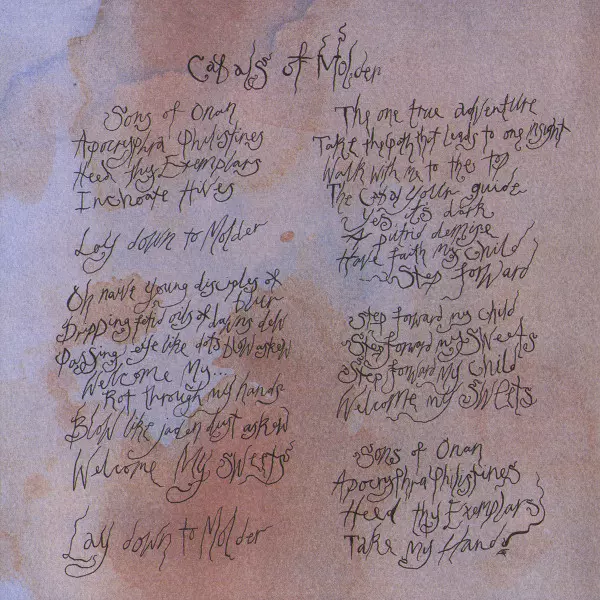 Cabals of Molder
Sons of Onan
Apocryphral Philistines
Heed thy Exemplars
Inchoate Hives
Lay down to Molder
Oh naive young disciples of
Dripping fetid oils of dawns dew
Passing eye like dots blow askew
Welcome My...
Rot through my hands
Blow like jaden dust askew
Welcome My Sweets
Lay down to Molder
The one true adventure
Take the path that leads to one insight
Walk with me to the top
The Cabal your guide
Yes its dark
A putrid demise
Have faith my Child
Step forward
Step forward my Child
Step forward my Sweets
Step forward My Child
Welcome my Sweets
Sons of Onan
Apocryphral Philistines
Heed thy Exemplars
Take my Hand